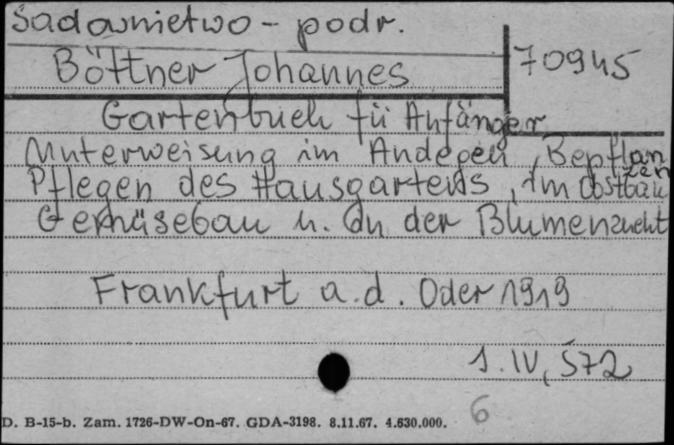 Sadownictwo - podr.
Böttner Johannes
70945
Gartenbuch fü Anfänger
Unterweisung im Andegen, Bepflan
zen
Pflegen des Hausgartens, im Obstbau
Gemüsebau u. in der Blumenzucht
Frankfurt a.d. Oder 1919
1. IV, 572
6
D. B-15-b. Zam. 1726-DW-On-67. GDA-3198. 8.11.67. 4.630.000.